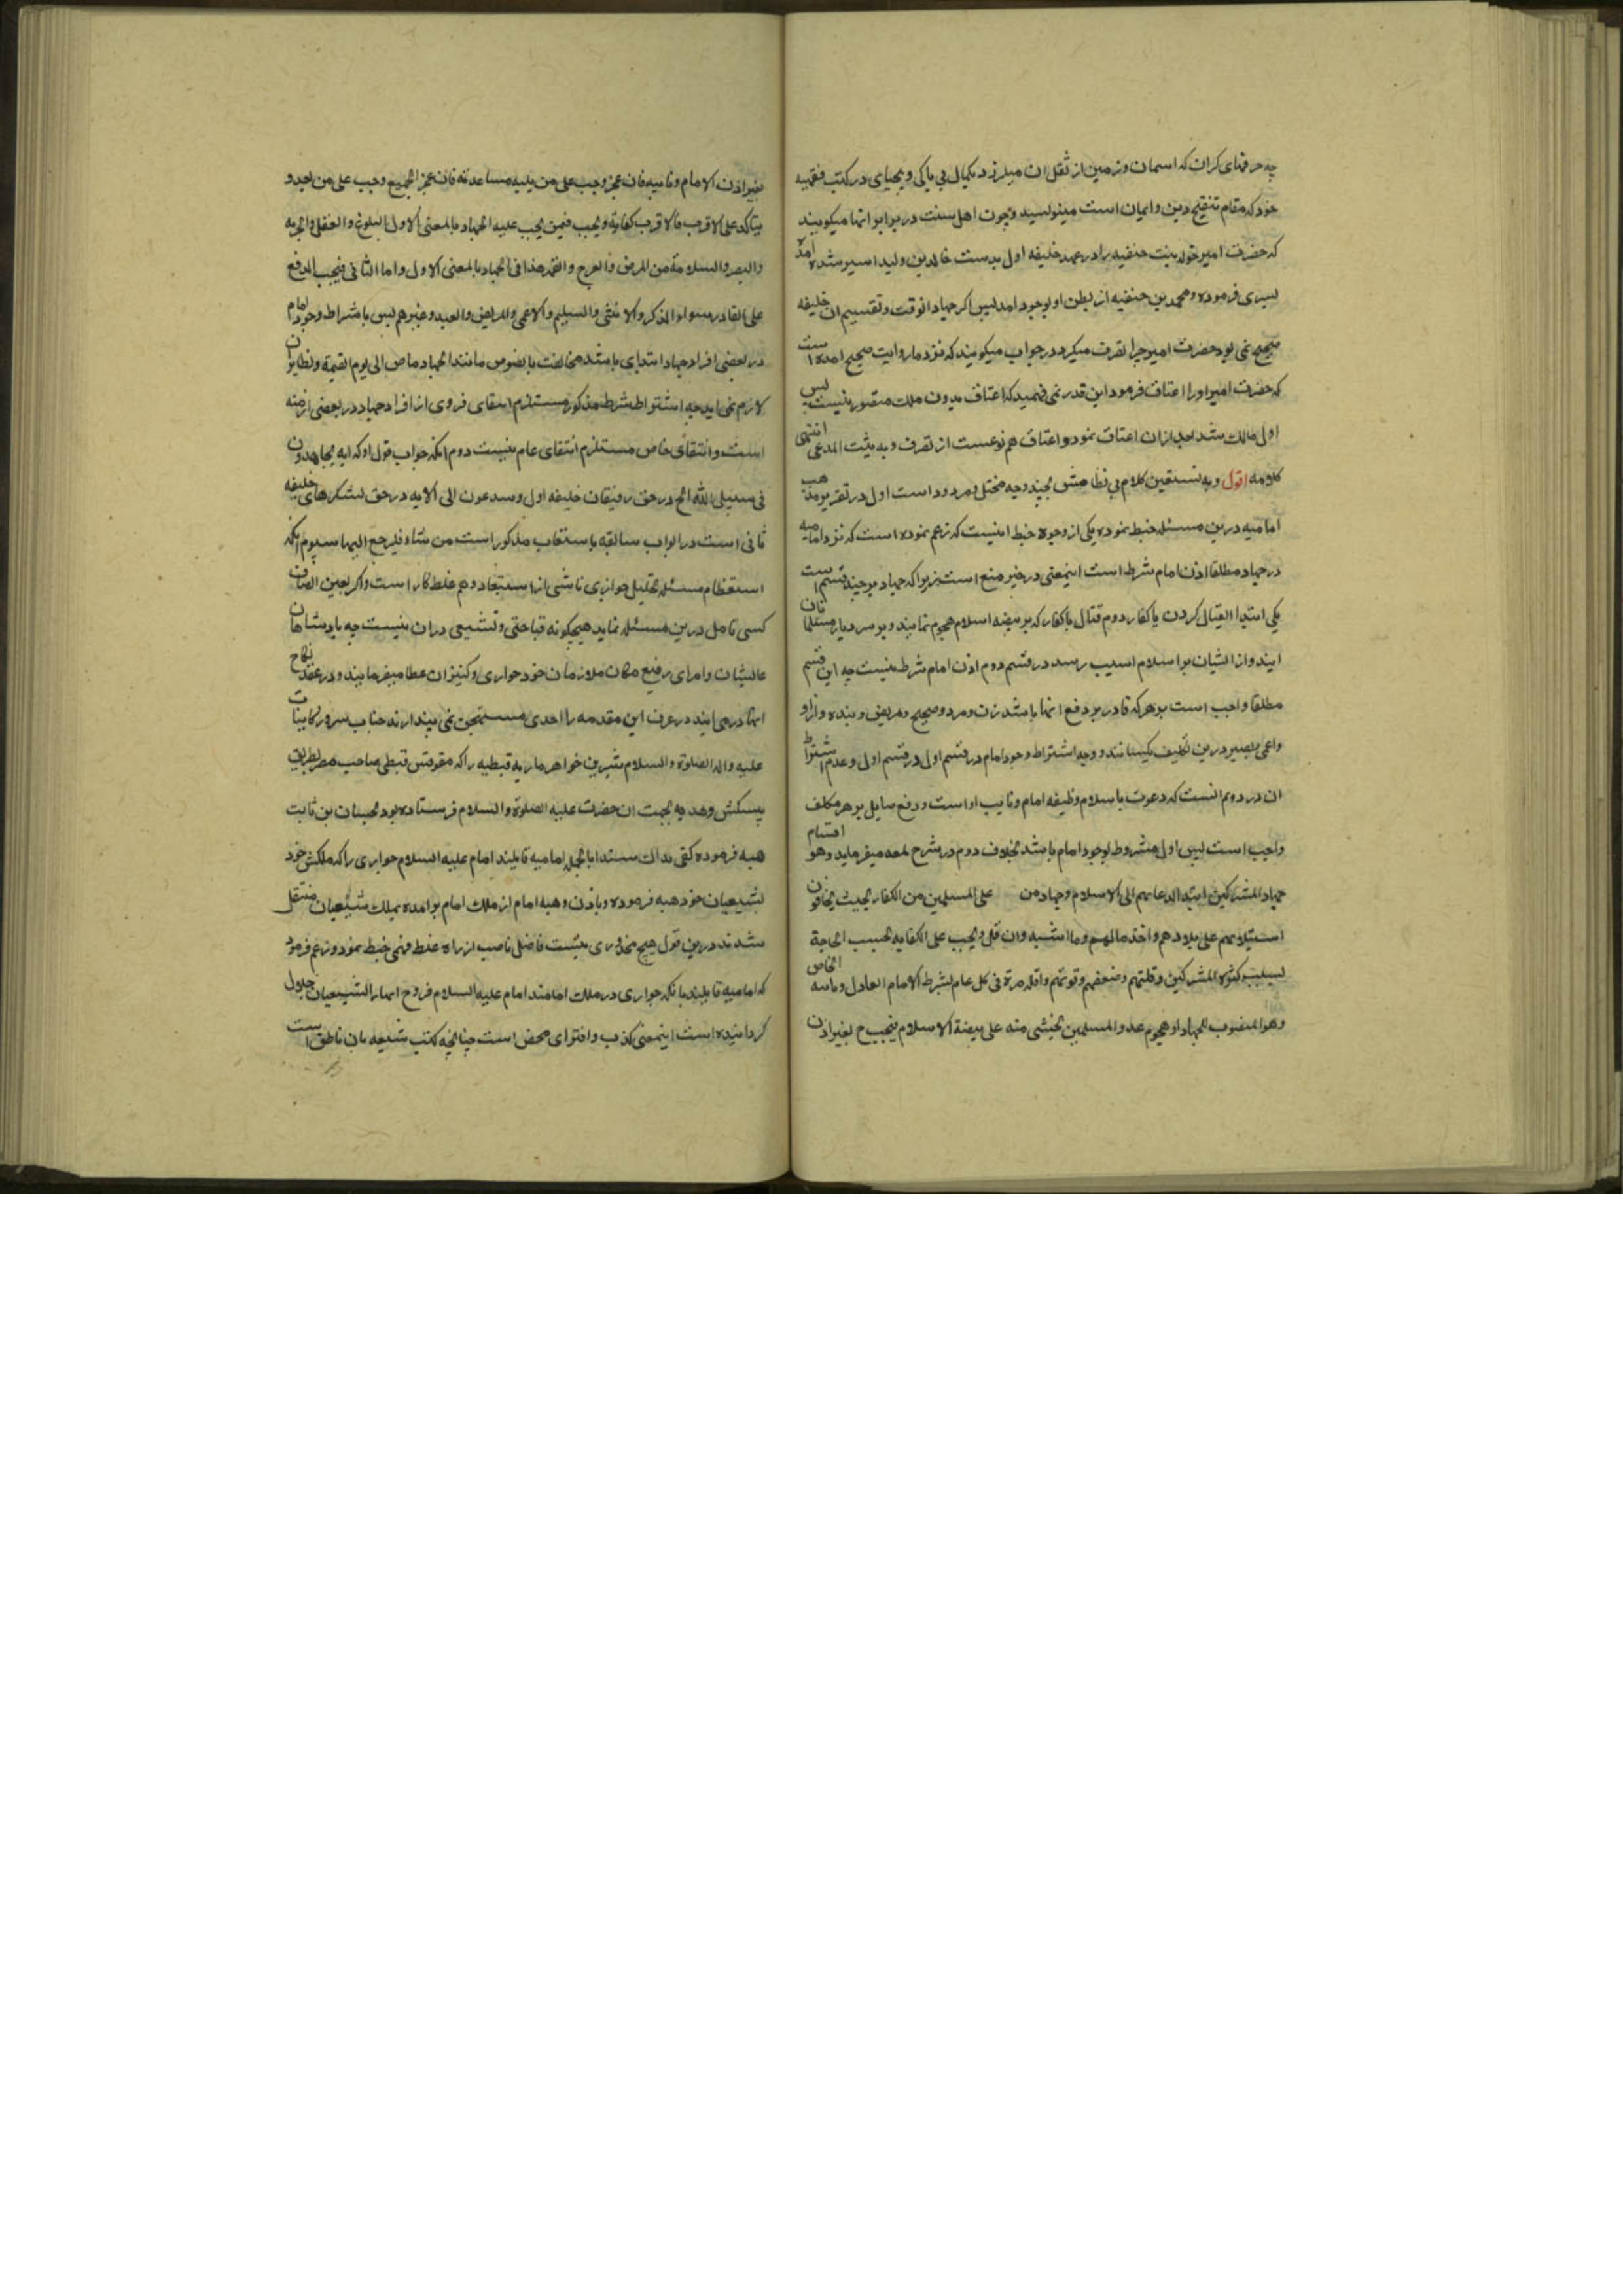 چه حرفهای کران که اسمان و زمین از ثقل ان میلرزد بکمال بی باکی و بیحیای در کتب فقهیه
خود که مقام تنقیح دین و ایمان است مینویسند و چون اهل سنت در برابر انها میکویند
که حضرت امیر خوله بنت حنفیه را در عهد خلیفه اول بدست خالد بن ولید اسیر شده امده
بسری فرموده و محمد بن حنفیه از بطن او بوجود امد پس اکر جهاد انوقت و تقسیم ان خلیفه
صحیح نمی بود حضرت امیر چرا تصرف میکرد در جواب میکویند که نزد ما روایت صحیح امده است
که حضرت امیر او را اعتاق فرمود این قدر نمی فهمند که اعتاق بدون ملک متصور نیست پس
اول مالک شد بعد ازان اعتاق نمود و اعتاق هم نوعیست از تصرف و به یثبت المدعی انتهی
کلامه اقول و به نستعین کلام بی نظامش بچند وجه مختل و مردود است اول در تقریر مذهب
امامیه درین مسئله خبط نموده یکی از وجوه خبط اینست که زعم نموده است که نزد امامیه
در جهاد مطلقا اذن امام شرط است اینمعنی در حیز منع است زیرا که جهاد بر چند قسم است
یکی ابتدا القتال کردن با کفار دوم قتال با کفار که بر بیضه اسلام هجوم نمایند و بر سر دیار مسلمانان
ایند و از ایشان بر اسلام اسیب رسد در قسم دوم اذن امام شرط نیست چه این قسم
مطلقا واجب است بر هر که قادر بر دفع انها باشد زن و مرد و صحیح و مریض و بنده و ازاد
و اعمی و بصیر درین تکلیف یکسانند و وجه اشتراط وجود امام در قسم اول در قسم اول و عدم اشتراط
ان در دوم انست که دعوت باسلام وظیفه امام و نایب او است و دفع صایل بر هر مکلف
واجب است پس اول مشروط بوجود امام باشد بخلاف دوم در شرح لمعه میفرماید و هو اقسام
جهاد المشرکین ابتدا لدعائهم الی الاسلام و جهاد من علی المسلمین من الکفار بحیث یخافون
استیلائهم علی بلادهم و اخذ مالهم و ما اشبهه وان قل و یجب علی الکفایه بحسب الحاجة
بسبب کثرة المشرکین و قلتهم و ضعفهم و قوتهم و اقله مرة فی کل عام بشرط الامام العادل و نایبه الخاص
و هو المنصوب للجهاد او هجوم عدو المسلمین یخشی منه علی بیضة الاسلام فیجب ح بغیر اذن
بغیر اذن الامام و نایبه فان عجز وجب علی من یلیه مساعدته فان عجز الجمیع وجب علی من بعد و
یتاکد علی الاقرب فالاقرب کفایة و یجب فیمن یجب علیه الجهاد بالمعنی الاول البلوغ و العقل و الحریة
و البصر و السلامة من المرض و العرج و الفقر هذا فی الجهاد بالمعنی الاول و اما الثانی فیجب الدفع
علی القادر سواء الذکر و الانثی و السلیم و الاعمی و المریض و العبد و غیرهم پس باشراط وجود امام
در بعضی افراد جهاد ابتدای باشد مخالفت بانصوص مانند الجهاد ماض الی یوم القیمة و نظایر ان
لازم نمی اید چه اشتراط شرط مذکور مستلزم انتفای فردی از افراد جهاد در بعضی ازمنه
است و انتفای خاص مستلزم انتفای عام نیست دوم انکه جواب قول او که ایه یجاهدون
فی سبیل الله الخ در حق رفیقان خلیفه اول و ستدعون الی الایه در حق لشکرهای خلیفه
ثانی است در ابواب سالفه باستیعاب مذکور است من شاء فلیرجع الیها سیوم انکه
استعظام مسئله تحلیل جواری ناشی از استبعاد وهم غلط کار است و اکر بعین انصاف
کسی تامل درین مسئله نماید هیچکونه قباحتی و تشنیعی دران نیست چه بادشاهان
عالیشان و امرای رفیع مکان ملازمان خود جواری و کنیزان عطا میفرمایند و در عقد نکاح
انها در می ایند در عرف این مقدمه را احدی مستهجن نمی پندارند جناب سرور کاینات
علیه و اله الصلوة و السلام شیرین خواهر ماریه قبطیه را که مقوقس قبطی صاحب مصر بطریق
پیشکش و هدیه بجهت ان حضرت علیه الصلوة و السلام فرستاده بود بحسان بن ثابت
هبه فرموده کفی بذلک سندا بالجمله امامیه قایلند امام علیه السلام جواری را که ملکش خود
بشیعیان خود هبه فرموده و باذن و هبه امام از ملک امام برامده بملک شیعیان منتقل
شدند درین قول هیچ محذوری نیست فاضل ناصب از راه غلط فهمی خبط نمود و زعم فرمود
که امامیه قایلند بانکه جواری در ملک امامند امام علیه السلام فروج انها را الشیعیان حلال
کردانیده است اینمعنی کذب و افترای محض است چنانچه کتب شیعه بان ناطق است